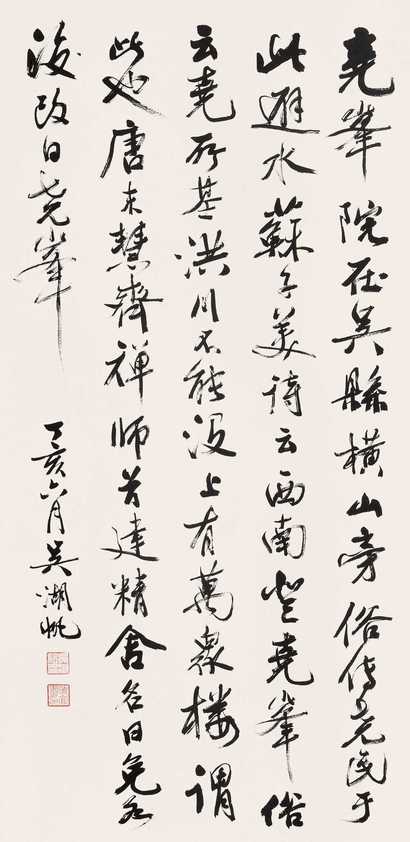 堯峯院在吳縣橫山旁俗傳堯民于
此避水蘇子美詩云西南登堯峯俗
云堯所基洪川不能沒上有萬衆棲謂
此也唐末慧齊禪師首建精舍名曰免水
後改曰堯峯
丁亥六月吳湖帆